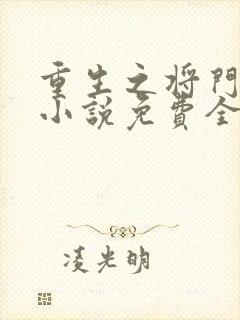 重生之将門
小說免費全
凌光明